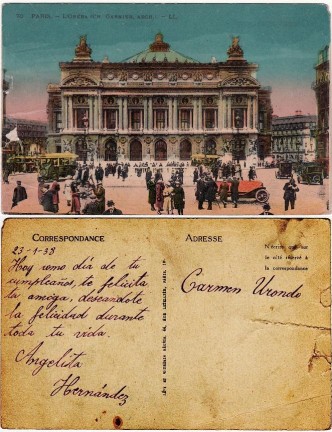 PARIS. — L'OPÉRA
LL.
CORRESPONDANCE
23-1-38
Hoy como día de tu
cumpleaños, te felicita
tu amiga, deseandote
la felicidad durante
toda tu vida.
Angelita
Hernández
ADRESSE
N'écrire que sur
le côté réservé à
la correspondance
Carmen Urondo